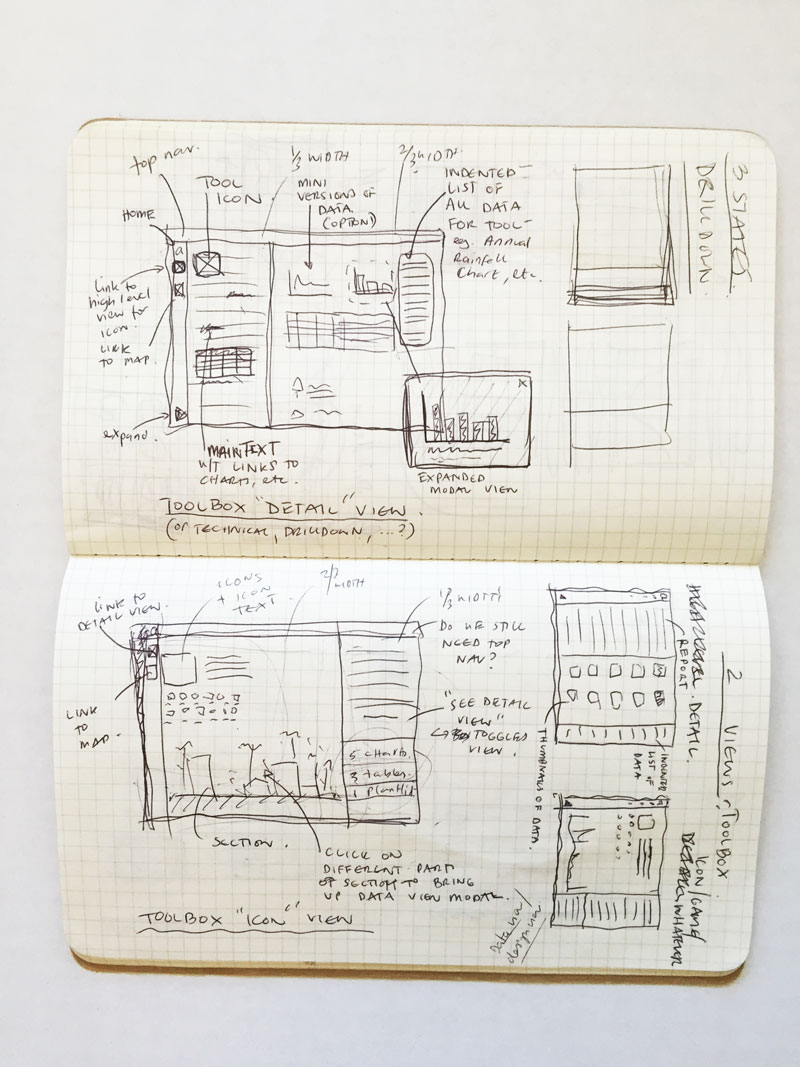 top nav.
TOOL
ICON.
1/3 WIDTH
MINI
VERSIONS OF
DATA
(OPTION)
2/3 WIDTH.
INDENTED
LIST OF
ALL DATA
FOR TOOL
eg. Annual
Rainfall
Chart, etc.
HOME
a
Link to
high level
view for
icon.
LINK
TO MAP.
expand.
MAIN TEXT
W/T LINKS TO
CHARTS, ETC.
X
EXPANDED
MODAL VIEW
TOOLBOX "DETAIL" VIEW.
(OR TECHNICAL, DRILLDOWN, ...?)
3 STATES.
DRILLDOWN.
LINK TO
DETAIL VIEW.
ICONS
+ ICON
TEXT
WIDTH
1/3 WIDTH
DO WE STILL
NEED TOP
NAV?
a
LINK
TO
MAP.
"SEE DETAIL
VIEW"
TOGGLES
VIEW.
5 charts.
3 tables.
1 plantlist
SECTION.
CLICK ON
DIFFERENT PART
OF SECTION TO BRING
UP DATA VIEW MODAL.
TOOLBOX "ICON" VIEW
2 VIEWS, TOOLBOX
DETAIL.
REPORT
THUMBNAILS OF DATA.
INDENTED
LIST OF
DATA
ICON/GAME
WHATEVER